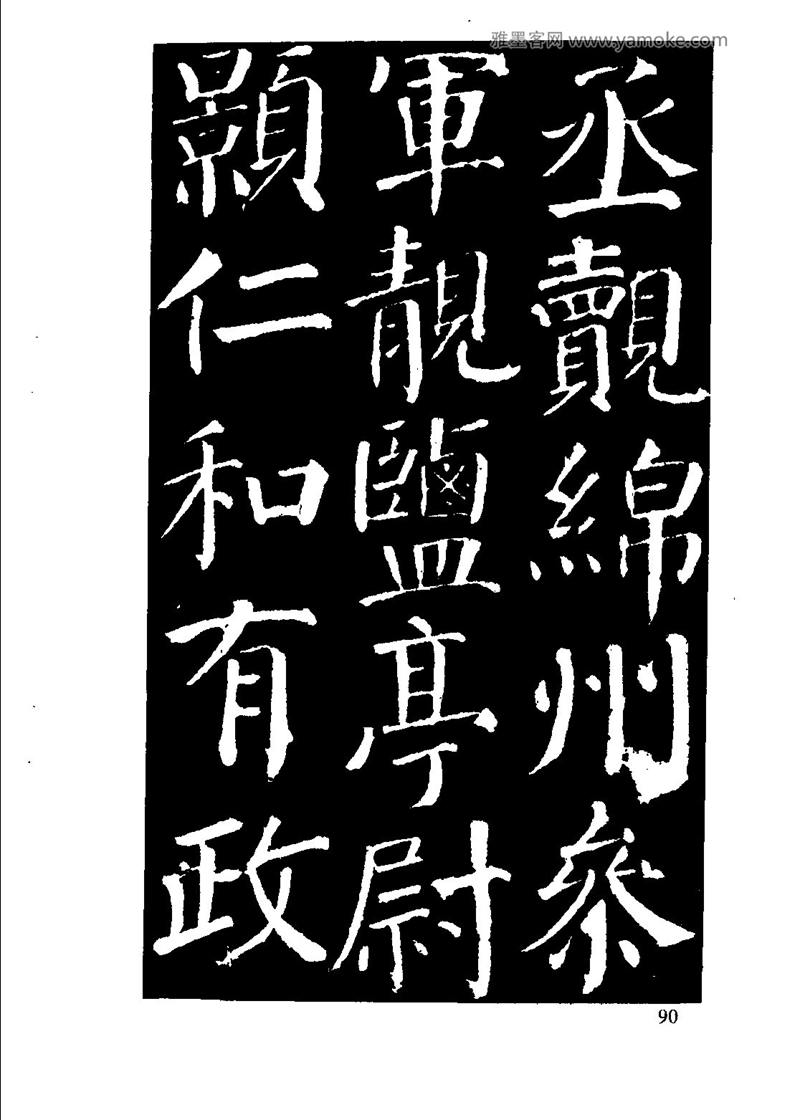 雅墨客网 www.yamoke.com
丞覿綿州叅
軍靚鹽亭尉
顥仁和有政
90